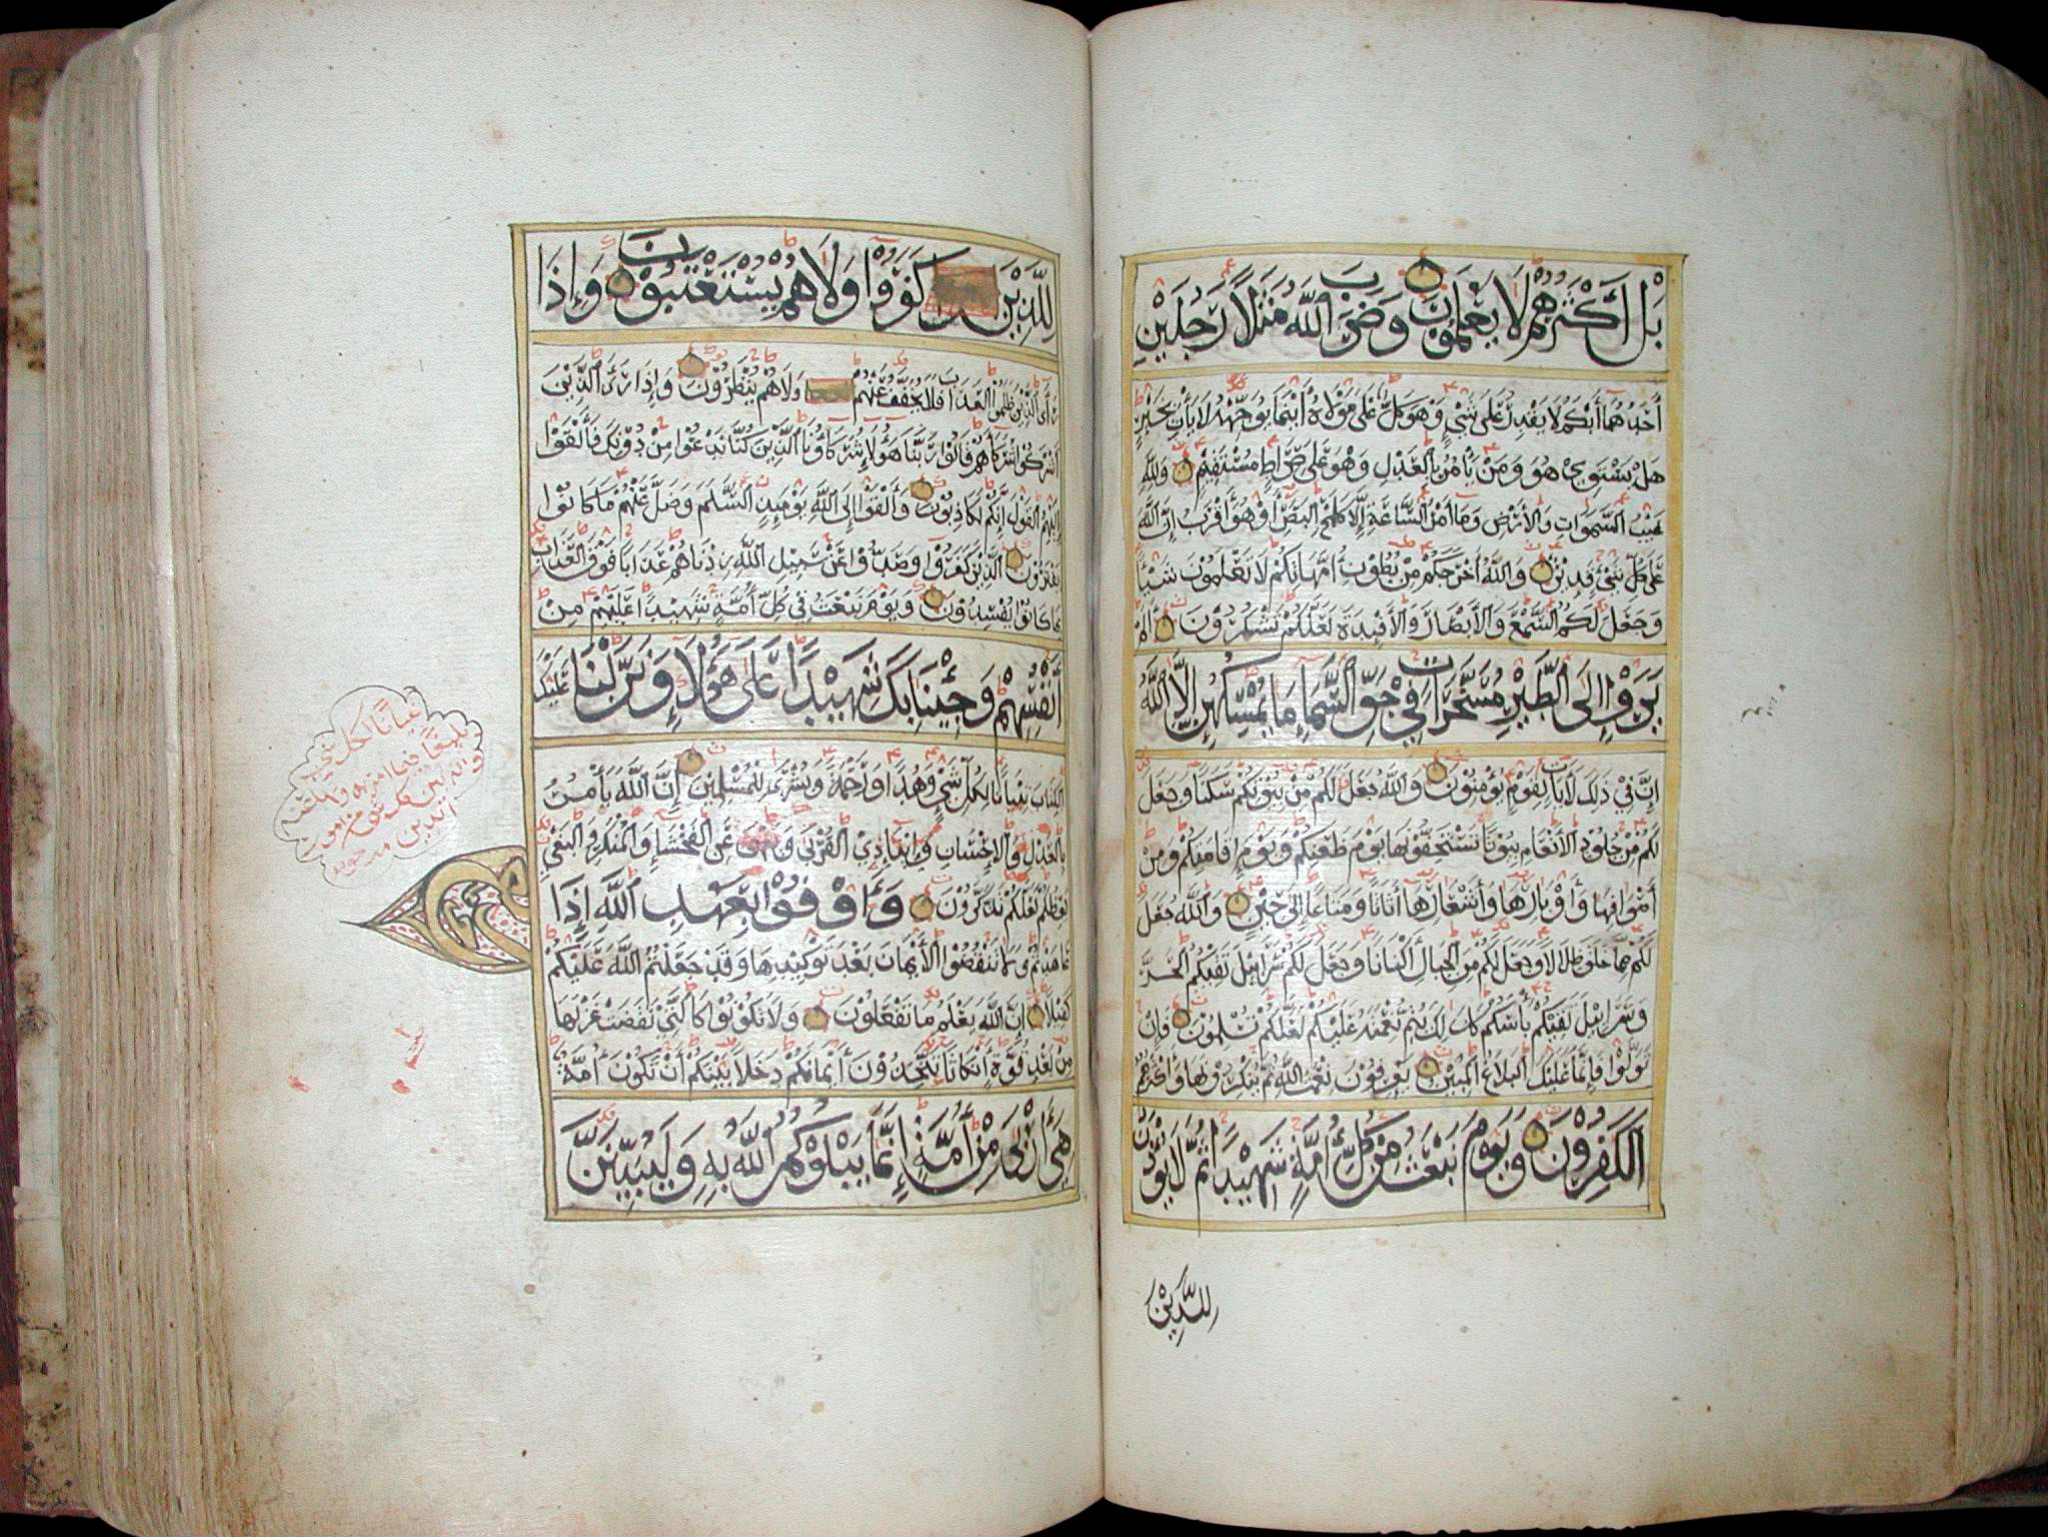 بَلْ أَكْثَرُهُمْ لَا يَعْلَمُونَ وَضَرَبَ اللَّهُ مَثَلًا رَجُلَيْنِ
أَحَدُهُمَا أَبْكَمُ لَا يَقْدِرُ عَلَى شَيْءٍ وَهُوَ كَلٌّ عَلَى مَوْلَاهُ أَيْنَمَا يُوَجِّهْهُ لَا يَأْتِ بِخَيْرٍ
هَلْ يَسْتَوِي هُوَ وَمَنْ يَأْمُرُ بِالْعَدْلِ وَهُوَ عَلَى صِرَاطٍ مُسْتَقِيمٍ وَلِلَّهِ
غَيْبُ السَّمَوَاتِ وَالْأَرْضِ وَمَا أَمْرُ السَّاعَةِ إِلَّا كَلَمْحِ الْبَصَرِ أَوْ هُوَ أَقْرَبُ إِنَّ اللَّهَ
عَلَى كُلِّ شَيْءٍ قَدِيرٌ وَاللَّهُ أَخْرَجَكُمْ مِنْ بُطُونِ أُمَّهَاتِكُمْ لَا تَعْلَمُونَ شَيْئًا
وَجَعَلَ لَكُمُ السَّمْعَ وَالْأَبْصَارَ وَالْأَفْئِدَةَ لَعَلَّكُمْ تَشْكُرُونَ أَلَمْ
يَرَوْا إِلَى الطَّيْرِ مُسَخَّرَاتٍ فِي جَوِّ السَّمَاءِ مَا يُمْسِكُهُنَّ إِلَّا اللَّهُ
إِنَّ فِي ذَلِكَ لَآيَاتٍ لِقَوْمٍ يُؤْمِنُونَ وَاللَّهُ جَعَلَ لَكُمْ مِنْ بُيُوتِكُمْ سَكَنًا وَجَعَلَ
لَكُمْ مِنْ جُلُودِ الْأَنْعَامِ بُيُوتًا تَسْتَخِفُّونَهَا يَوْمَ ظَعْنِكُمْ وَيَوْمَ إِقَامَتِكُمْ وَمِنْ
أَصْوَافِهَا وَأَوْبَارِهَا وَأَشْعَارِهَا أَثَاثًا وَمَتَاعًا إِلَى حِينٍ وَاللَّهُ جَعَلَ
لَكُمْ مِمَّا خَلَقَ ظِلَالًا وَجَعَلَ لَكُمْ مِنَ الْجِبَالِ أَكْنَانًا وَجَعَلَ لَكُمْ سَرَابِيلَ تَقِيكُمُ الْحَرَّ
وَسَرَابِيلَ تَقِيكُمْ بَأْسَكُمْ كَذَلِكَ يُتِمُّ نِعْمَتَهُ عَلَيْكُمْ لَعَلَّكُمْ تُسْلِمُونَ فَإِنْ
تَوَلَّوْا فَإِنَّمَا عَلَيْكَ الْبَلَاغُ الْمُبِينُ يَعْرِفُونَ نِعْمَتَ اللَّهِ ثُمَّ يُنْكِرُونَهَا وَأَكْثَرُهُمُ
الْكَفِرُونَ وَيَوْمَ نَبْعَثُ مِنْ كُلِّ أُمَّةٍ شَهِيدًا ثُمَّ لَا يُؤْذَنُ
لِلَّذِينَ
لِلَّذِينَ كَفَرُوا وَلَا هُمْ يُسْتَعْتَبُونَ وَإِذَا
رَأَى الَّذِينَ ظَلَمُوا الْعَذَابَ فَلَا يُخَفَّفُ عَنْهُمْ وَلَا هُمْ يُنْظَرُونَ وَإِذَا رَأَى الَّذِينَ
أَشْرَكُوا شُرَكَاءَهُمْ قَالُوا رَبَّنَا هَؤُلَاءِ شُرَكَاؤُنَا الَّذِينَ كُنَّا نَدْعُوا مِنْ دُونِكَ فَأَلْقَوْا
إِلَيْهِمُ الْقَوْلَ إِنَّكُمْ لَكَاذِبُونَ وَأَلْقَوْا إِلَى اللَّهِ يَوْمَئِذٍ السَّلَمَ وَضَلَّ عَنْهُمْ مَا كَانُوا
يَفْتَرُونَ الَّذِينَ كَفَرُوا وَصَدُّوا عَنْ سَبِيلِ اللَّهِ زِدْنَاهُمْ عَذَابًا فَوْقَ الْعَذَابِ
بِمَا كَانُوا يُفْسِدُونَ وَيَوْمَ نَبْعَثُ فِي كُلِّ أُمَّةٍ شَهِيدًا عَلَيْهِمْ مِنْ
أَنْفُسِهِمْ وَجِئْنَا بِكَ شَهِيدًا عَلَى هَؤُلَاءِ وَنَزَّلْنَا عَلَيْكَ
الْكِتَابَ تِبْيَانًا لِكُلِّ شَيْءٍ وَهُدًى وَرَحْمَةً وَبُشْرَى لِلْمُسْلِمِينَ إِنَّ اللَّهَ يَأْمُرُ
بِالْعَدْلِ وَالْإِحْسَانِ وَإِيتَاءِ ذِي الْقُرْبَى وَيَنْهَى عَنِ الْفَحْشَاءِ وَالْمُنْكَرِ وَالْبَغْيِ
يَعِظُكُمْ لَعَلَّكُمْ تَذَكَّرُونَ وَأَوْفُوا بِعَهْدِ اللَّهِ إِذَا
عَاهَدْتُمْ وَلَا تَنْقُضُوا الْأَيْمَانَ بَعْدَ تَوْكِيدِهَا وَقَدْ جَعَلْتُمُ اللَّهَ عَلَيْكُمْ
كَفِيلًا إِنَّ اللَّهَ يَعْلَمُ مَا تَفْعَلُونَ وَلَا تَكُونُوا كَالَّتِي نَقَضَتْ غَزْلَهَا
مِنْ بَعْدِ قُوَّةٍ أَنْكَاثًا تَتَّخِذُونَ أَيْمَانَكُمْ دَخَلًا بَيْنَكُمْ أَنْ تَكُونَ أُمَّةٌ
هِيَ أَرْبَى مِنْ أُمَّةٍ إِنَّمَا يَبْلُوكُمُ اللَّهُ بِهِ وَلَيُبَيِّنَنَّ